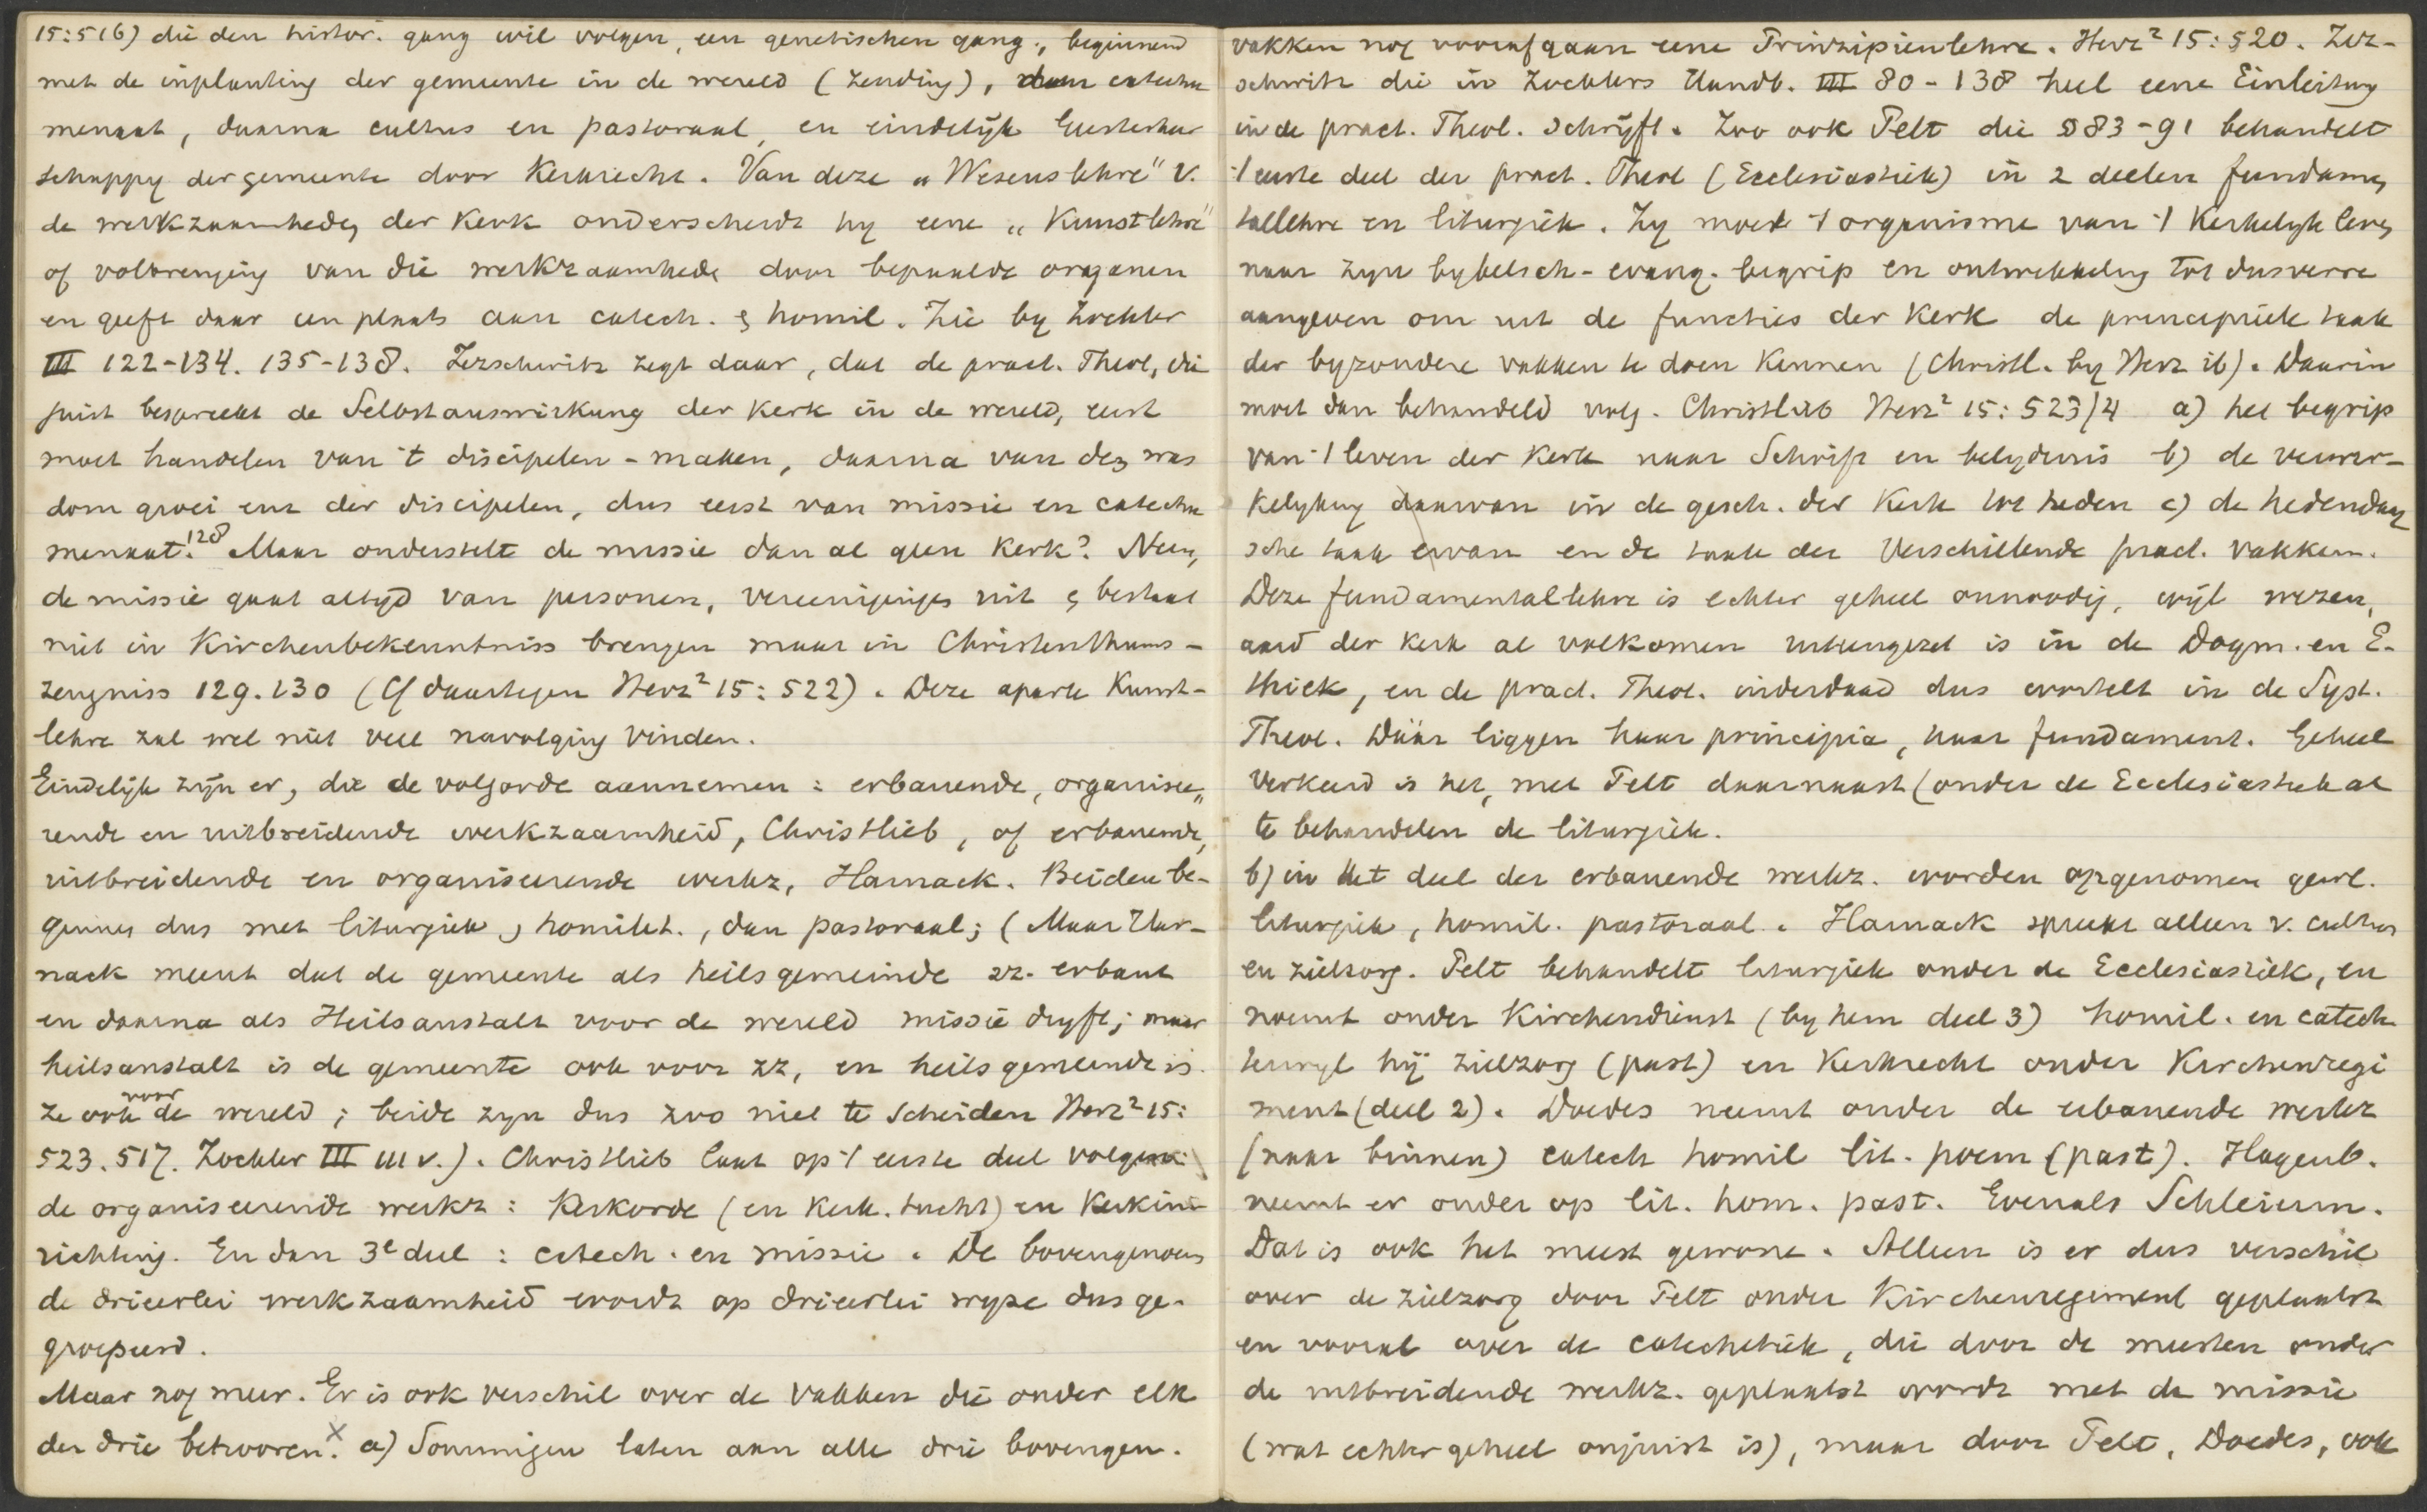 15:516) die den histor. gang wil volgen, een genetischen gang, beginnend
met de inplanting der gemeente in de wereld (zending), dan catechu
menaat, daarna cultus en pastoraal, en eindelijk
schappy der gemeente door Kerkrecht. Van deze „Wesenslehre" v.
de werkzaamheden der Kerk onderscheidt hy eene „Kunstlehre"
of volbrenging van die werkzaamheden door bepaalde oraganen
en geeft daar een plaats aan catech. & homil. Zie by Zockler
III 122-134. 135-138. Zezschwitz zegt daar, dat de pract. Theol, die
juist bespreekt de Selbstauswirkung der Kerk in de wereld, eerst
moet handelen van 't discipelen-maken, daarna van den was
dom groei enz der discipelen, dus eerst van missie en catechu
menaat. 128 Maar onderstelt de missie dan al geen Kerk? Neen,
de missie gaat altyd van personen, vereenigingen uit & bestaat
niet in Kirchenbekenntniss brengen maar in Christenthums-
zeugniss 129.130 (Cf daartegen Herz² 15:522). Deze aparte Kunst-
lehre zal wel niet veel navolging vinden.
Eindelijk zijn er, die de volgorde aannemen: erbauende, organisee„
rende en uitbreidende werkzaamheid, Christlieb, of erbauende,
uitbreidende en organiseerende werkz, Harnack. Beiden be-
ginnen dus met liturgiek, homilet., dan pastoraal; (Maar Har-
nack meent dat de gemeente als heilsgemeinde zz. erbaut
en daarna als Heilsanstalt voor de wereld missie dryft; maar
heilsanstalt is de gemeente ook voor zz, en heilsgemeinde is
ze ook voor de wereld; beide zyn dus zoo niet te scheiden Herz² 15:
523.517. Zockler III 111 v.). Christlieb laat op 't eerste deel volgen:
de organiseerende werkz: Kerkorde (en Kerk. tucht) en Kerkin-
richting. En dan 3e deel: catech. en missie. De bovengenoem
de drieerlei werkzaamheid wordt op drieerlei wyze dus ge-
groepeerd.
Maar nog meer. Er is ook verschil over de vakken die onder elk
der drie behooren. x a) Sommigen laten aan alle drie bovengen.
vakken nog voorafgaan eene Prinzipienlehre. Herz² 15:520. Zez-
schwitz die in Zocklers Handb. III 80-138 heel eene Einleitung
in de pract. Theol. schryft. Zoo ook Pelt die § 83-91 behandelt
't eerste deel der pract. Theol (Ecclesiastiek) in 2 deelen fundamen
tallehre en liturgiek. Zy moet 't organisme van 't Kerkelyk leven
naar zyn bybelsch-evang. begrip en ontwikkeling tot dusverre
aangeven om uit de functies der Kerk de principiele taak
der byzondere vakken te doen Kennen (Christl. by Herz ib). Daarin
moet dan behandeld volg. Christlieb Herz² 15:523/4 a) het begrip
van 't leven der Kerk naar Schrift en belydenis b) de verwer-
kelyking daarvan in de gesch. der Kerk tot heden c) de hedendaag
sche taak ervan en de taak der verschillende pract. vakken.
Deze fundamentallehre is echter geheel onnoodig, wijl wezen,
aard der Kerk al volkomen uiteengezet is in de Dogm. en E-
thiek, en de pract. Theol. inderdaad dus wortelt in de Syst.
Theol. Dáár liggen haar principia, haar fundament. Geheel
verkeerd is het, met Pelt daarnaast (onder de Ecclesiastiek al
te behandelen de liturgiek.
b) in het deel der erbauende werkz. worden opgenomen gewl.
liturgiek, homil. pastoraal. Harnack spreekt alleen v. cultus
en zielzorg. Pelt behandelt liturgiek onder de Ecclesiastiek, en
noemt onder Kirchendienst (by hem deel 3) homil. en catech
terwyl hij zielzorg (past) en Kerkrecht onder Kirchenregi
ment (deel 2). Doedes neemt onder de erbauende werkz
(naar binnen) catech homil lit. poem (past). Hagenb.
neemt er onder op lit. hom. past. Evenals Schleierm.
Dat is ook het meest gewone. Alleen is er dus verschil
over de zielzorg door Pelt onder Kirchenregiment geplaatst
en vooral over de catechetiek, die door de meesten onder
de uitbreidende werkz. geplaatst wordt met de missie
(wat echter geheel onjuist is), maar door Pelt, Doedes, ook